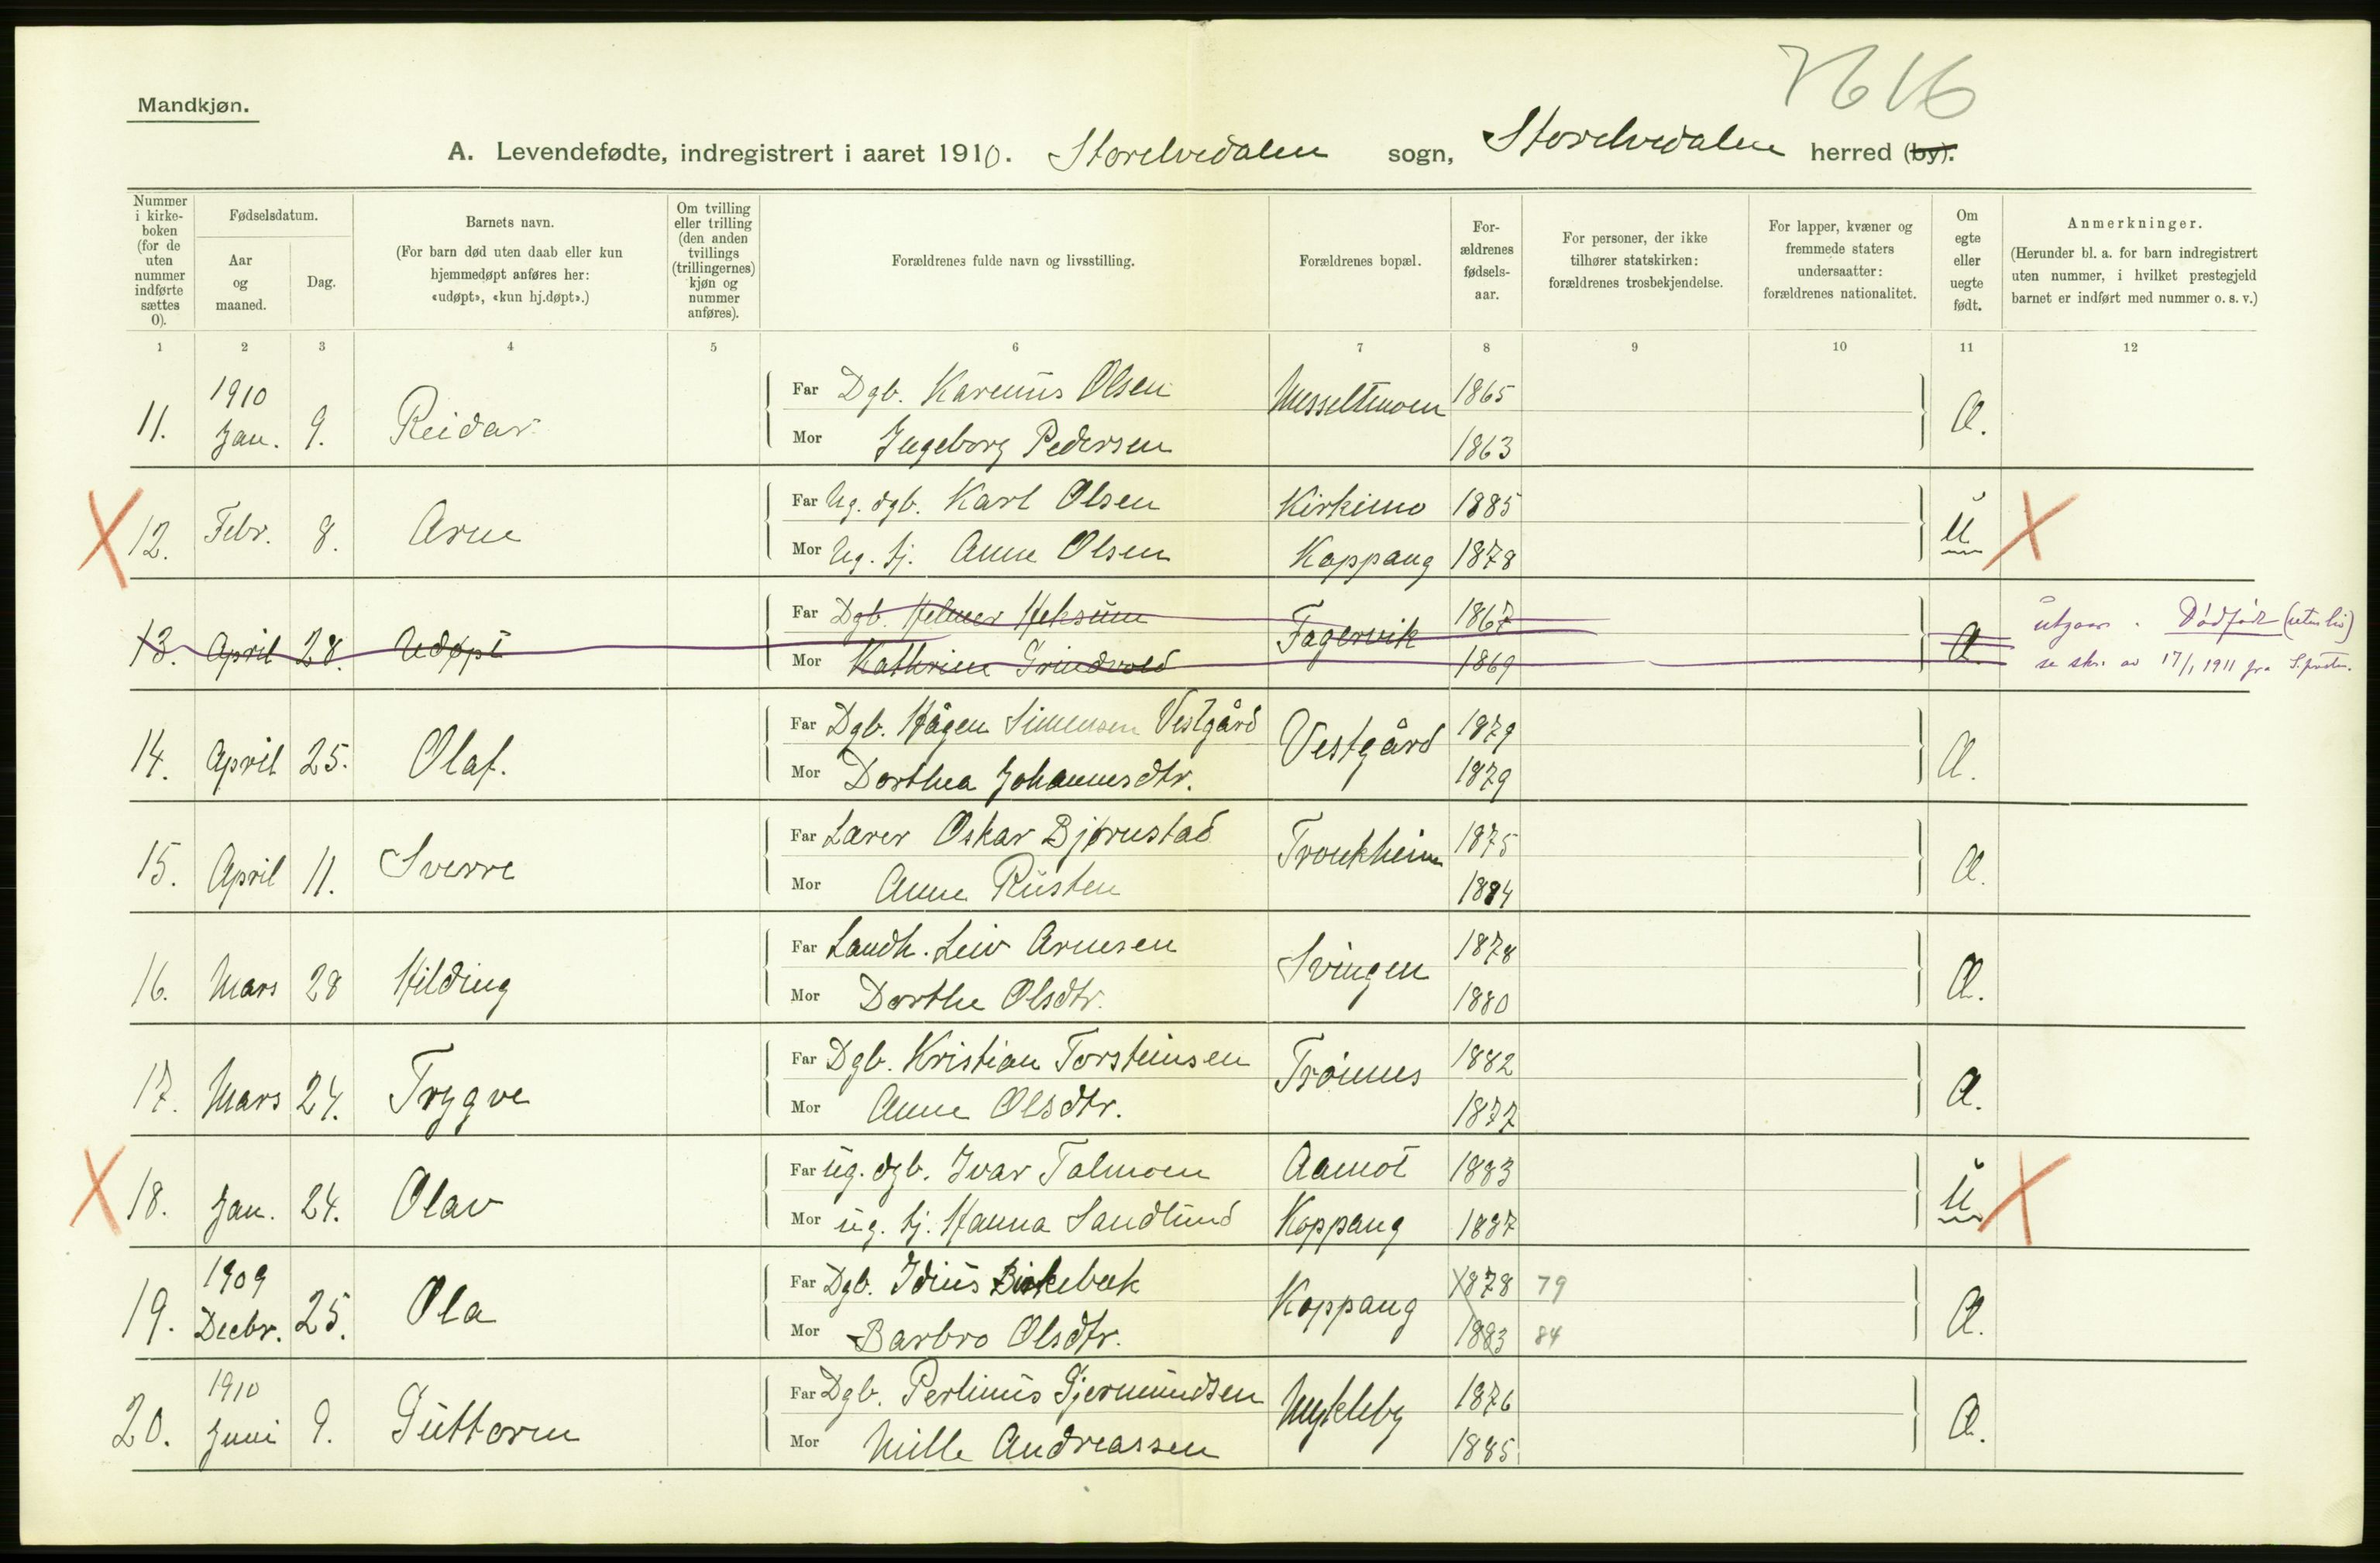 7616
Mandkjøn.
A. Levendefødte, indregistrert i aaret 1910. Storelvedalen sogn, Storelvedalen herred (by).
Nummer i kirke-boken (for de uten nummer indførte sættes 0).
Fødselsdatum.
Aar og maaned.
Dag.
Barnets navn.
(For barn død uten daab eller kun hjemmedøpt anføres her: «udøpt», «kun hj.døpt».)
Om tvilling eller trilling (den anden tvillings (trillingernes) kjøn og nummer anføres).
Forældrenes fulde navn og livsstilling.
Forældrenes bopæl.
For-ældrenes fødsels-aar.
For personer, der ikke tilhører statskirken: forældrenes trosbekjendelse.
For lapper, kvæner og fremmede staters undersaatter: forældrenes nationalitet.
Om egte eller uegte født.
Anmerkninger.
(Herunder bl. a. for barn indregistrert uten nummer, i hvilket prestegjeld barnet er indført med nummer o. s. v.)
1 2 3 4 5 6 7 8 9 10 11 12
11. 1910 Jan. 9. Reidar Far Dgb. Karenus Olsen 1865 Æ.
Mor Ingeborg Pedersen 1863
12. Febr. 8. Arne Far Ug. dgb. Karl Olsen Kirkemo 1885 U
Mor Ug. tj. Anne Olsen Koppang 1878
13. April 28. Udøpt Far Dgb. Helmer Heksum Fagervik 1867 Æ. utgaar. Dødfødt (uten liv)
Mor Kathrine Grindvold 1869 se skr. av 17/1 1911 fra S.presten.
14. April 25. Olaf. Far Dgb. Hågen Simensen Vestgård Vestgård 1879 Æ.
Mor Dorthea Johannesdtr. 1879
15. April 11. Sverre Far Lærer Oskar Bjørnstad 1875 Æ.
Mor Anne Rusten 1884
16. Mars 28 Hilding Far Landh. Leiv Arnesen Svingen 1878 Æ.
Mor Dorthe Olsdtr. 1880
17. Mars 24. Trygve Far Dgb. Kristian Torsteinsen Trønnes 1882 Æ.
Mor Anne Olsdtr. 1877
18. Jan. 24. Olav Far ug. dgb. Ivar Tolmoen Aamot 1883 U
Mor ug. tj. Hanna Sandlund Koppang 1887
19. 1909 Decbr. 25. Ola Far Dgb. Idius Birkebæk Koppang 1878 79 Æ.
Mor Barbro Olsdtr. 1883 84
20. 1910 Juni 9. Guttorm Far Dgb. Perlinus Gjermundsen Mykleby 1876 Æ.
Mor Mille Andreassen 1885